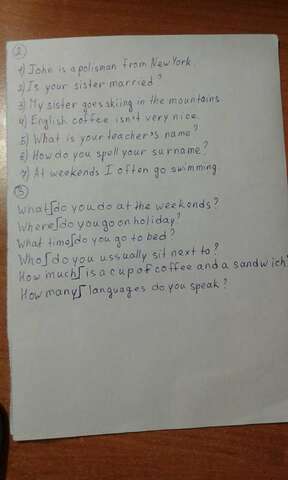 2
1) John is a polisman from New York.
2) Is your sister married?
3) My sister goes skiing in the mountains.
4) English coffee isn't very nice.
5) What is your teacher's name?
6) How do you spell your surname?
7) At weekends I often go swimming.
3
What∫do you do at the weekends?
Where∫do you go on holiday?
What time∫do you go to bed?
Who∫do you ussually sit next to?
How much∫is a cup of coffee and a sandwich?
How many∫languages do you speak?